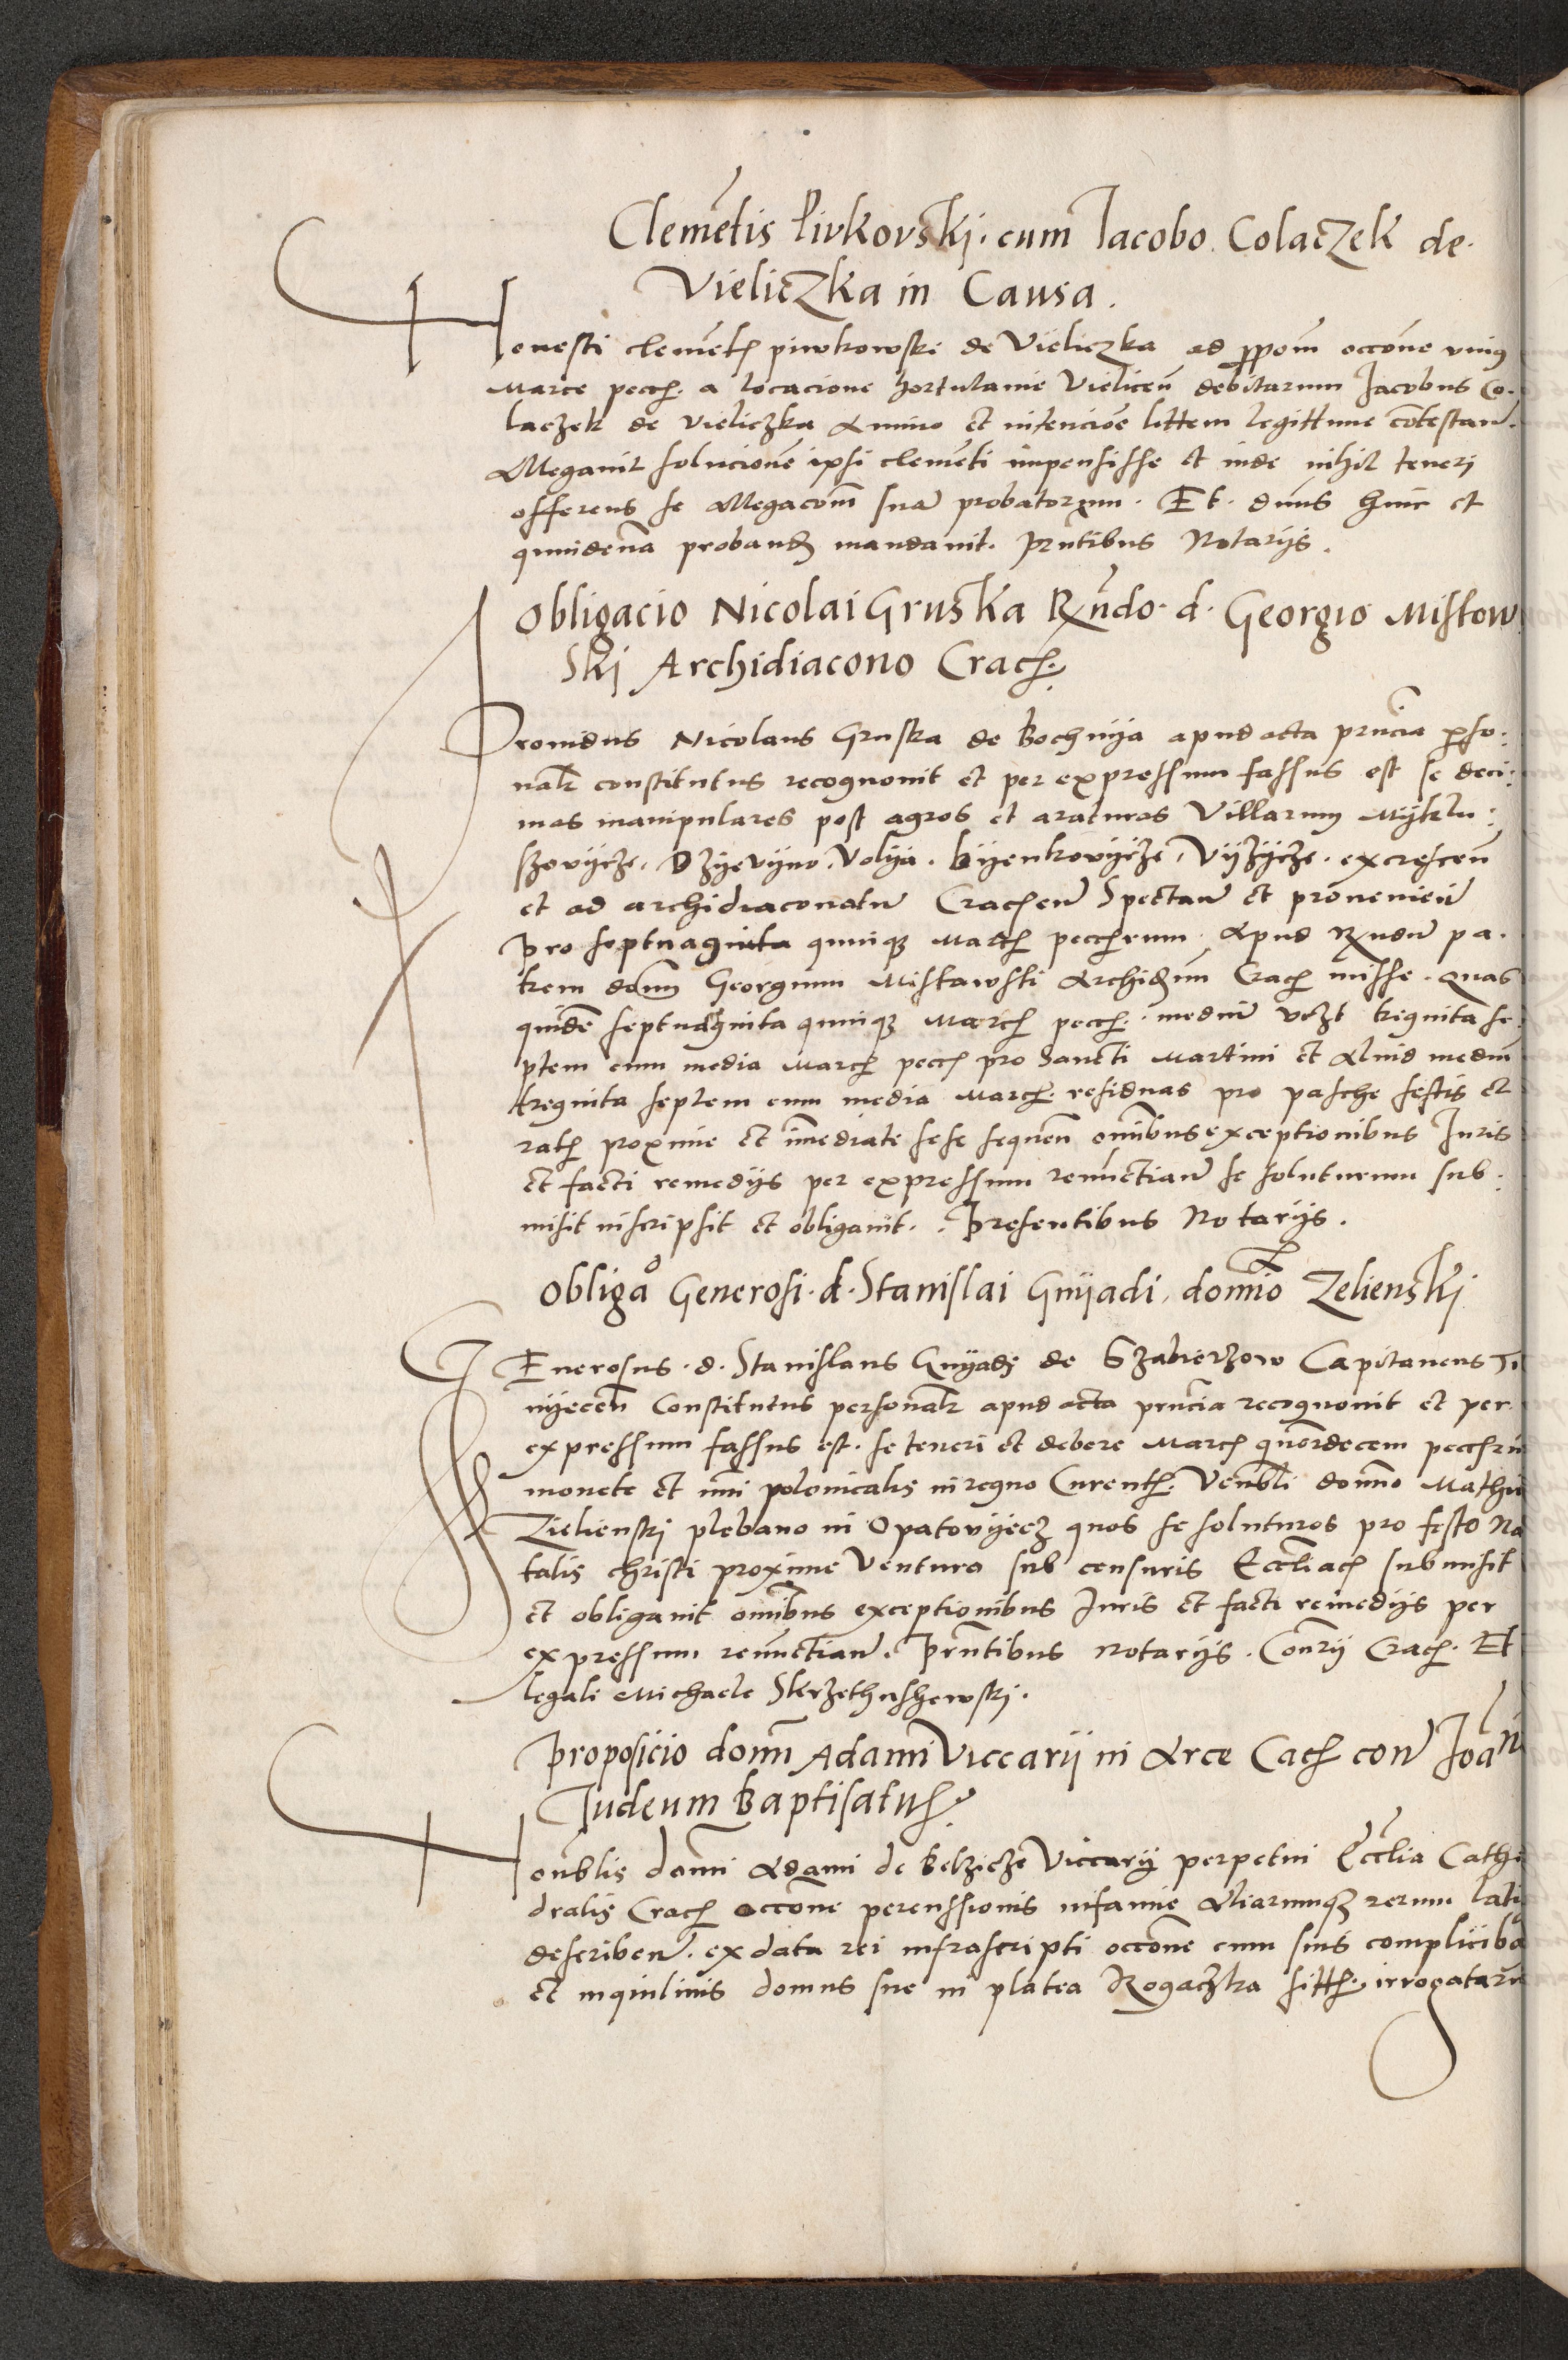 Clemētis Pivkovskj. cum Jacobo Colaczek de
Vieliczka in Causa.
Honesti clemēt piwkowski de Vieliczka ad ꝓpom̄ occōne vnius
Marce pecc. a locacione hortulanie Vielicen̄ debitarum Jacobus Co.
laczek de vieliczka Animo et intencioē littem legittime cōtestan̄.
Allegauit solucionē ipsi clemēti impensisse et inde nihil teneri
offerens se allegacōm suā probatorum. Et dn̄us hinc et
quindenā probandum mandauit. pn̄tibus Notarijs.
Obligacio Nicolai Gruska Rn̄do. d. Georgio Miskow
Skj Archidiacono Crac.
Prouidus Nicolaus Gruska de Bochnija apud acta pn̄cia perso:
nalr constitutus recognouit et per expressum fassus est se deci:
mas manipulares post agros et araturas Villarum Mijklu:
szovijcze. Dzijevijno. Volija. Bijenkovijcze. Vijzijcze. excrescen̄
et ad archidiaconatū Cracen̄ Spectan̄ et prouenien̄
pro septuaginta quinque Marc peccrum Apud Rn̄dū pa.
trem dom̄ Georgium Miskawski Archidm̄ Crac misse. quas
quidē septuaginta quinque Marc pecc. mediū vczt triginta se
ptem cum media Marc pecc pro Sancti Martini et Aliud mediū
triginta septem cum media Marc. residuas pro pasche festis et
rat proxime et im̄ediate sese sequen̄ om̄ibus exceptionibus Juris
et facti remedijs per expressum renūctian̄ se soluturum sub:
misit inscripsit et obligauit. Presentibus Notarijs.
Obligāo Generosi. d. Stanislai Gnijadi. domīo Zelienskj
GEnerosus. d. Stanislaus Gnijadi de Szabierzow Capitaneus Ti
nijecen̄ Constitutus personalr apud acta pn̄cia recognouit et per
expressum fassus est. se teneri et debere Marc quōrdecem peccrū
monete et nūi polonicalis in regno Curent. Venbli domno Mathie
Zielienski plebano in Opatovijecz quos se soluturos pro festo Na
talis christi proxime Venturo sub censuris Eccliac submisit
et obligauit om̄ibus exceptionibus Juris et facti remedijs per
expressum renūctian̄. Pn̄tibus Notarijs. Con̄rij Crac. Et
legali Michaele Skrzethuskewskj.
Proposicio dom̄ Adami Viccarij in Arce Cac con̄ Joan̄
Judeum Baptisatum.
Honblis dom̄i Adami de Belzicze Viccarij perpetui Ecclia Cathe
dralis Crac occōne percussionis infamie Aliarumque rerum lati
describen̄. ex data rei infrascripti occōne cum suis complicibus
et inquilinis domus sue in platea Rogaczka sitt. irrogatarū